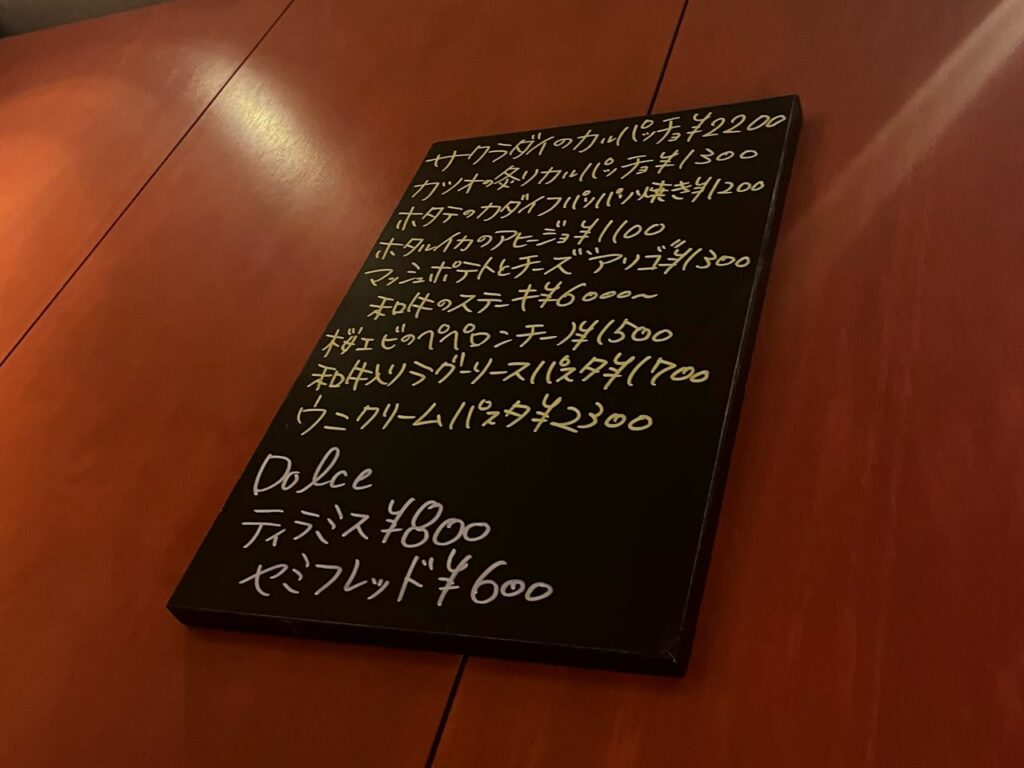 サクラダイのカルパッチョ¥2200
カツオの炙りカルパッチョ¥1300
ホタテのカダイフパリパリ焼き¥1200
ホタルイカのアヒージョ¥1100
マッシュポテトとチーズ"アリゴ"¥1300
和牛のステーキ¥6000~
桜エビのペペロンチーノ¥1500
和牛入りラグーソースパスタ¥1700
ウニクリームパスタ¥2300
Dolce
ティラミス¥800
セミフレッド¥600